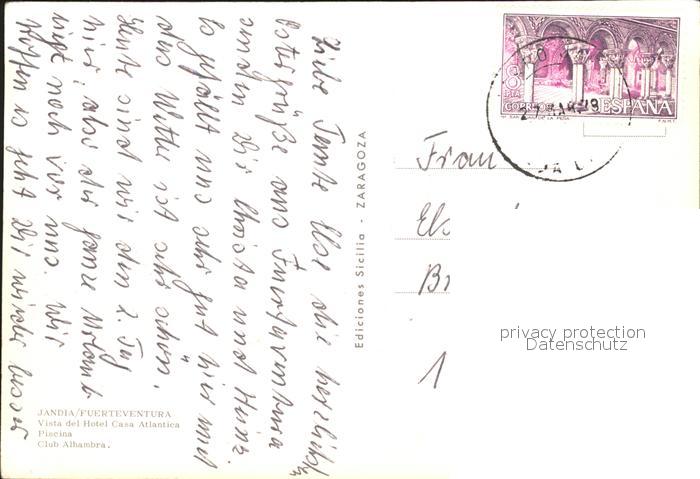 Liebe Tante Else die herzlichsten
Ostergrüße aus Fuerteventura
senden Dir Christa und Heinz.
Es gefällt uns sehr gut hier und
das Wetter ist sehr schön.
Heute sind wir den 2. Tag
hier, also der ganze Urlaub
liegt noch vor uns. Wir
hoffen es geht Dir wieder besser
JANDIA/FUERTEVENTURA
Vista del Hotel Casa Atlantica
Piscina
Club Alhambra.
Ediciones Sicilia - ZARAGOZA
8
PTA
CORREOS
ESPAÑA
F.N.M.T.
27 MAR
Frau
1
privacy protection
Datenschutz